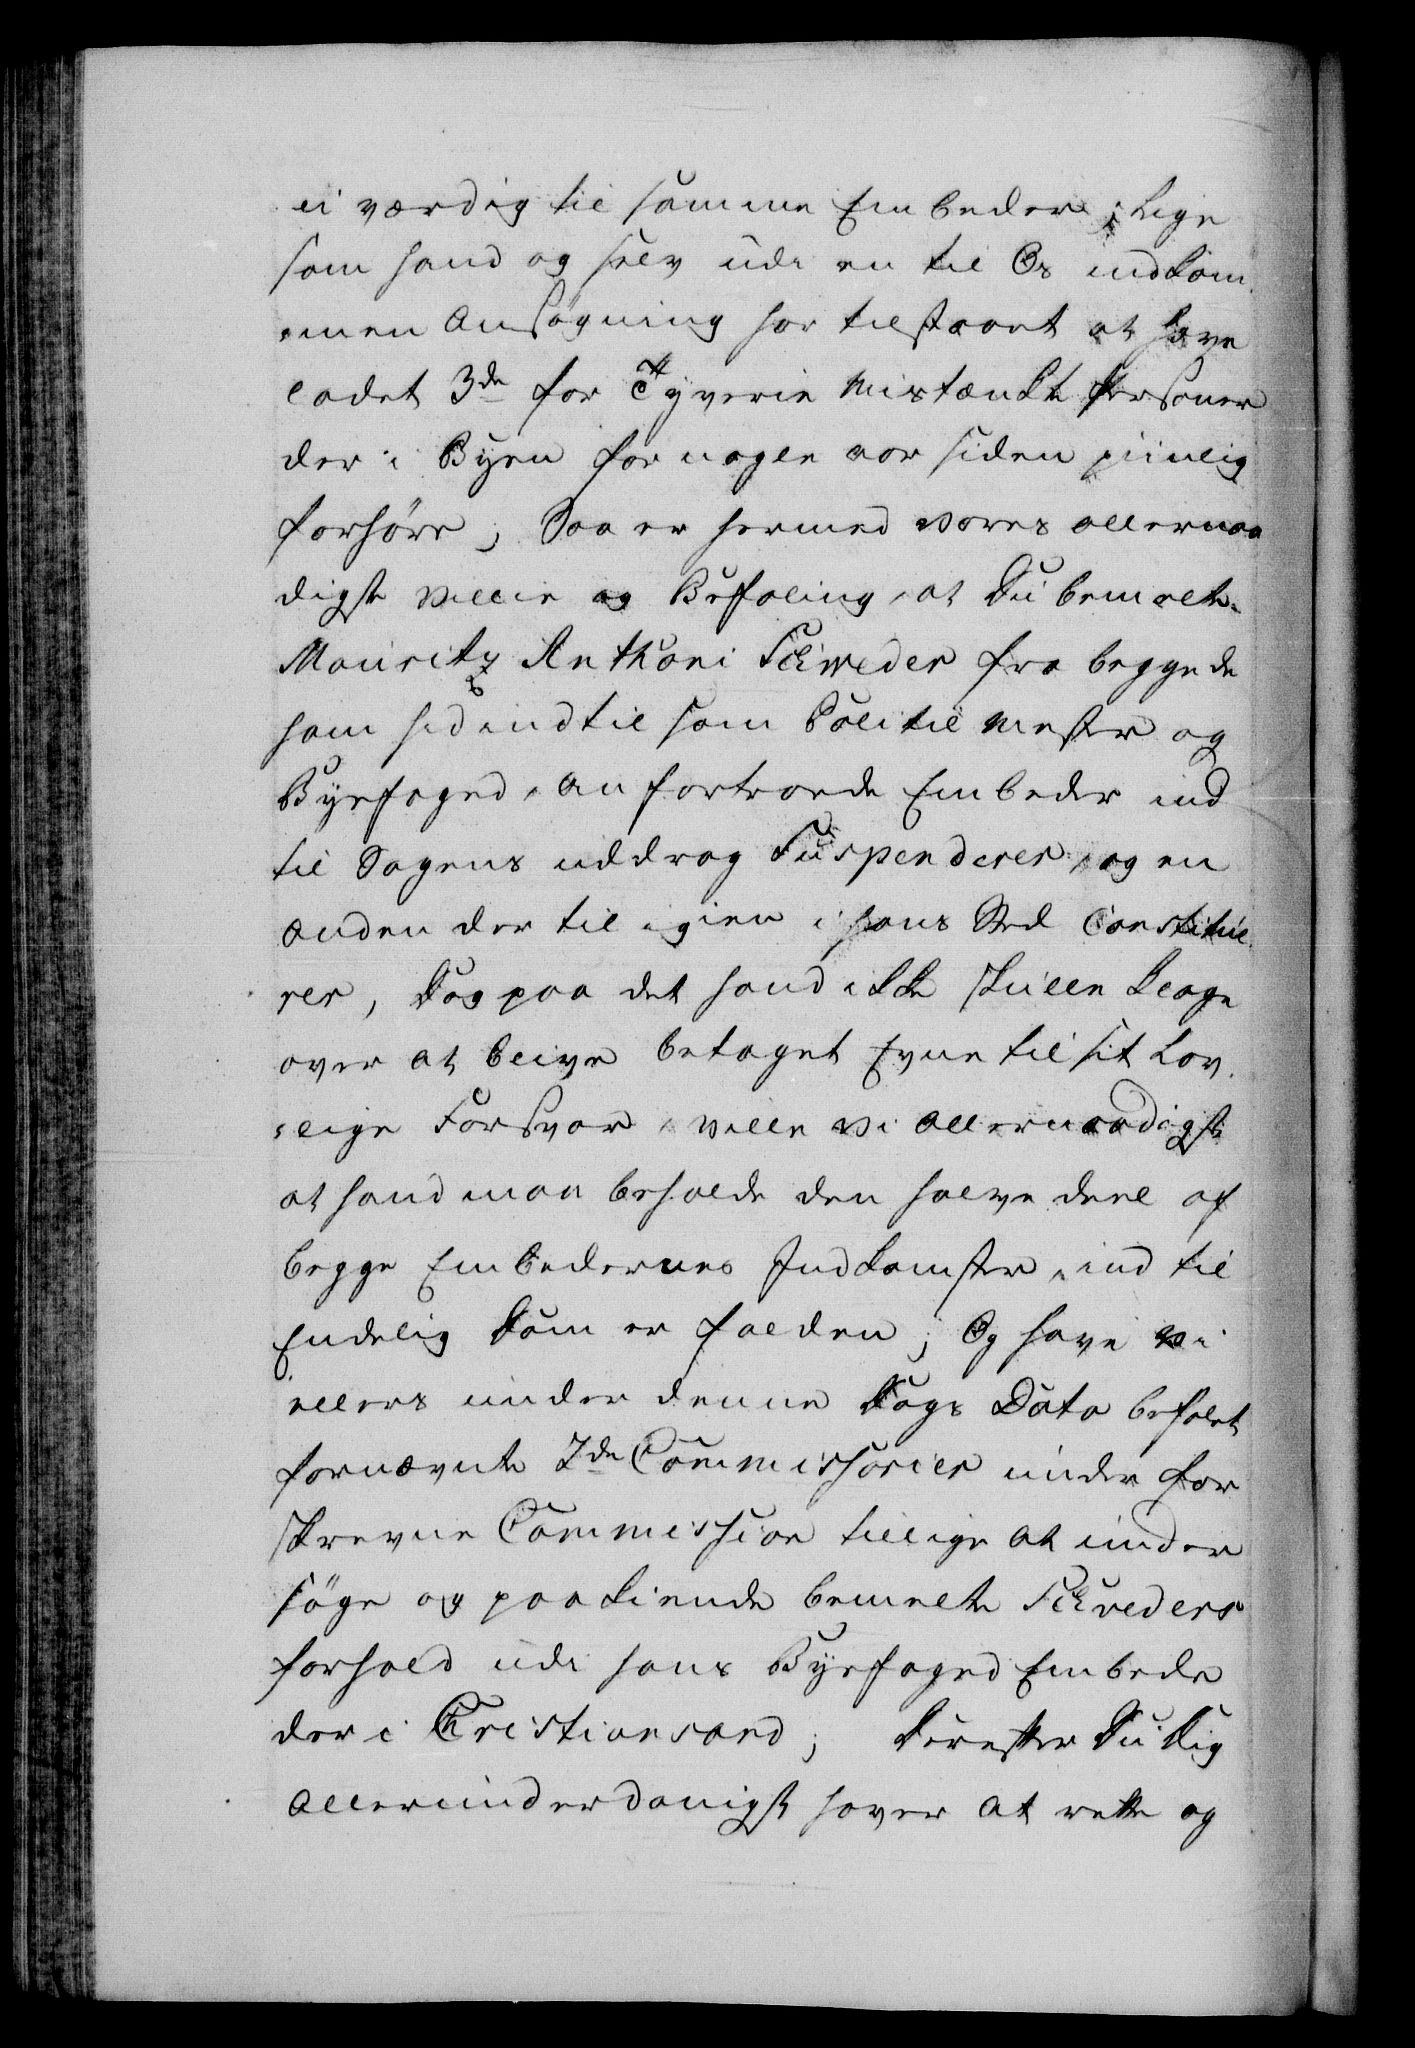 ei værdig til samme Embeder; Lige
som hand og selv udi en til Os indkom¬
¬men Ansøgning har tilstaaet at have
ladet 3de for Tyverie Mistænkte Personer
der i Byen for nogle aar siden piinlig
forhøre; Saa er hermed vores allernaa
digste villie og Befaling, at Du bemelte
Mouritz Anthoni Schweder fra begge de
ham hid indtil som Politie Mester og
Byefoged, anfortroede Embeder ind
til Sagens uddrag Suspenderer, og en
anden der til igien i hans Sted Constitue¬
rer, Dog paa det hand ikke skulle klage
over at blive betaget Evne til sit Lov¬
¬lige Forsvar, ville vi allernaadigst
at hand maa beholde den halve deel af
begge Embedernes Indkomster, ind til
Endelig Dom er falden; Og have vi
ellers under denne Dags Dato befalet
fornævnte 2de Commissarier under for
skrevne Commission tillige at under
søge og paakiende bemelte Schveders
forhold udi hans Byefoged Embede
der i Christiansand; Derefter Du Dig
allerunderdanigst haver at rette og